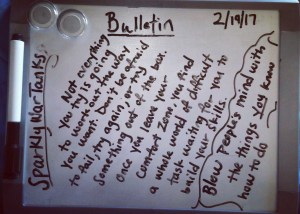 Bulletin
2/19/17
SparklyWarTanks:
Not everything
you try is going
to work out the way
you want. Don't be afraid
to fail try again, or try
something out of the box.
Once you leave your
comfort zone, you find
a whole world of difficult
task waiting for you to
build your skills.
Blow people's mind with
the things you know
how to do